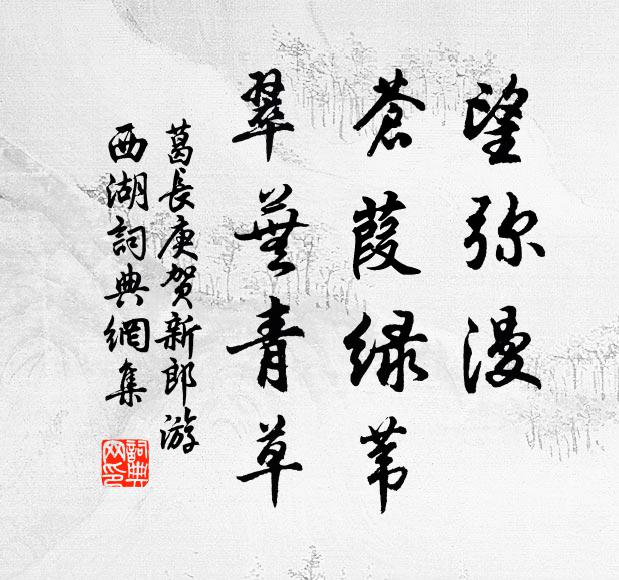 望弥漫
苍葭绿苇
翠芜青草
葛長庚贺新郎游
西湖詞典網集
詞典网印